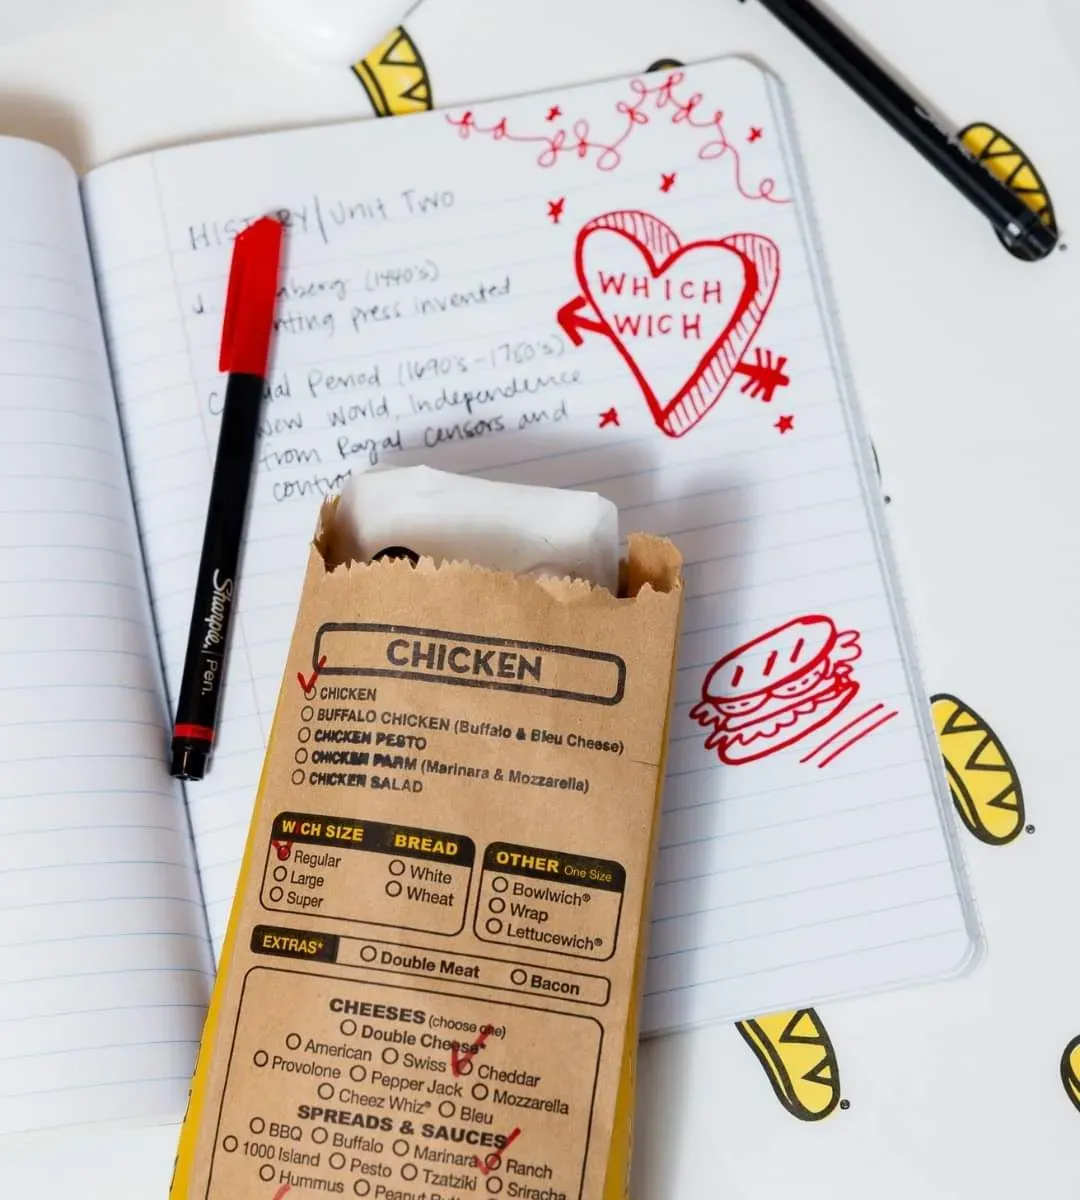 HISTORY/Unit Two
(1440's)
press invented
Period (1690's-1760's)
New World, Independence
from Royal censors and
WHICH
WICH
Sharpie. Pen.
CHICKEN
CHICKEN
BUFFALO CHICKEN (Buffalo & Bleu Cheese)
CHICKEN PESTO
CHICKEN PARM (Marinara & Mozzarella)
CHICKEN SALAD
WICH SIZE BREAD
Regular White
Large Wheat
Super
OTHER One Size
Bowlwich®
Wrap
Lettucewich®
EXTRAS* Double Meat Bacon
CHEESES (choose one)
Double Cheese*
American Swiss Cheddar
Provolone Pepper Jack Mozzarella
Cheez Whiz® Bleu
SPREADS & SAUCES
BBQ Buffalo Marinara Ranch
1000 Island Pesto Tzatziki Sriracha
Hummus Peanut